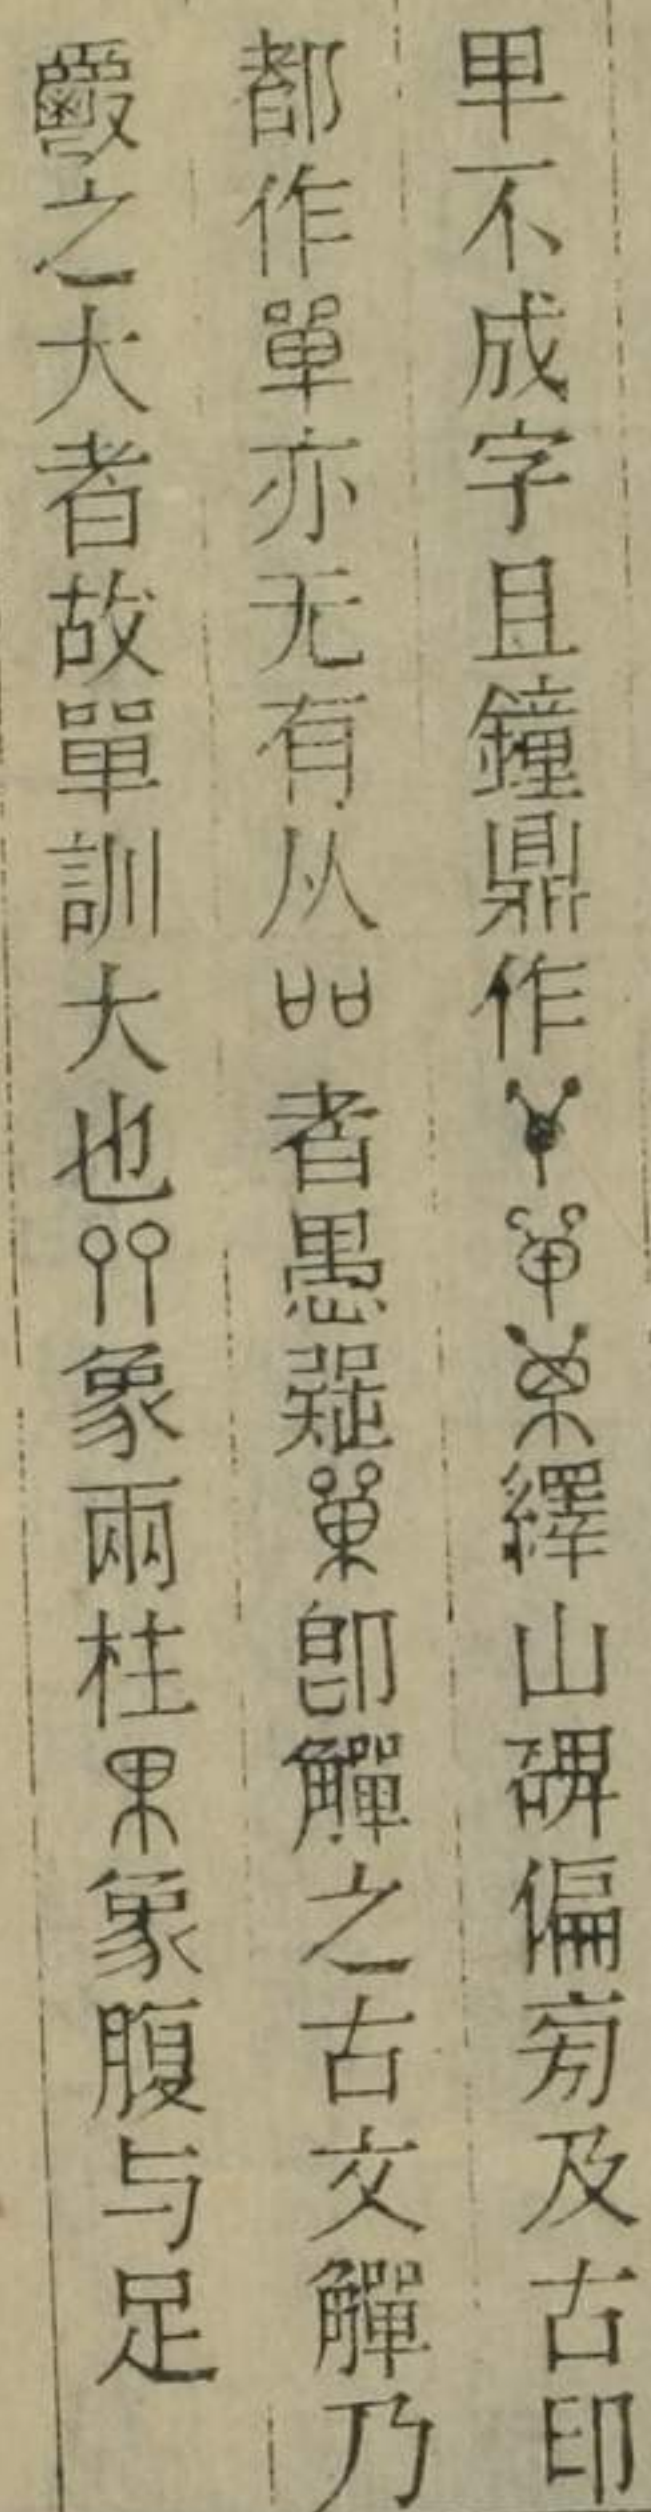 𠦒不成字且鐘鼎作繹山碑偏旁及古印
都作單亦无有从吅者愚疑即觶之古文觶乃
之大者故單訓大也象兩柱象腹与足